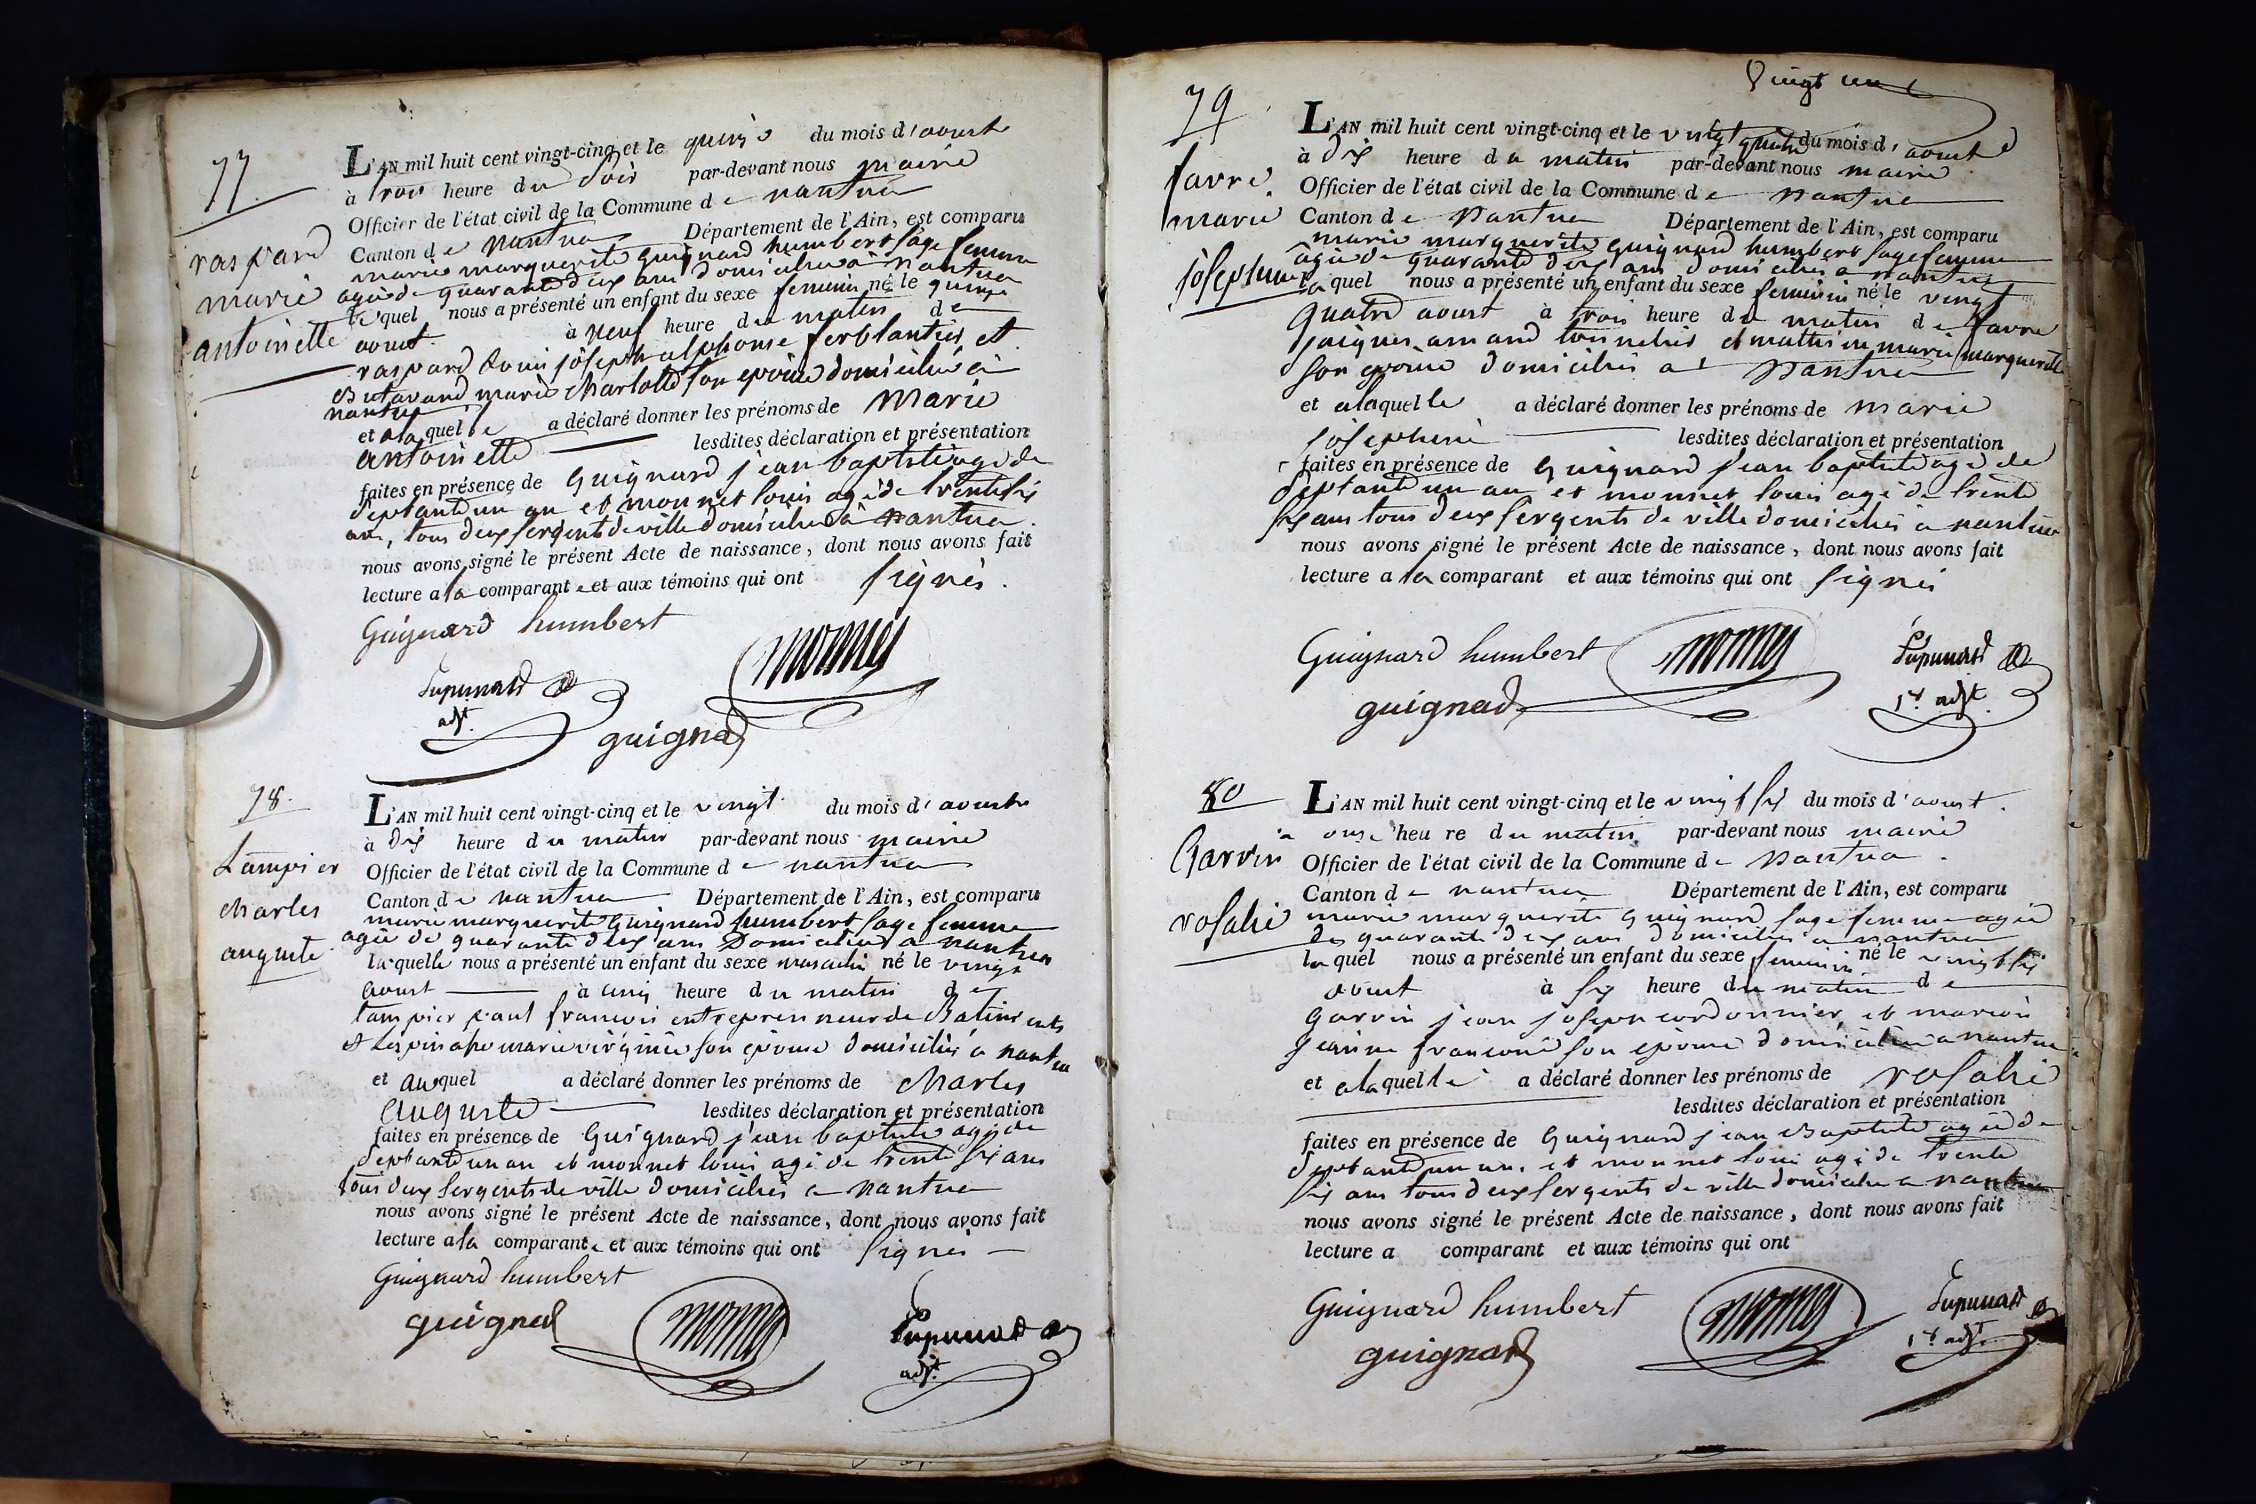 77.
raspard
marie
antoinette
L'AN mil huit cent vingt-cinq et le quinze du mois d'aoust
à trois heure du soir par-devant nous maire
Officier de l'état civil de la Commune de nantua
Canton de nantua Département de l'Ain, est comparu
marie marguerite guignard humbert sage femme
agée de quarante deux ans domiciliée à nantua
lequel nous a présenté un enfant du sexe feminin né le quinze
aoust à neuf heure du matin de
raspard louis joseph alphonse ferblantier et
butavand marie charlotte son epouse domiciliés à
nantua
et alaquelle a déclaré donner les prénoms de marie
antoinette lesdites déclaration et présentation
faites en présence de Guignard jean baptiste agé de
septante un an et monnet louis agé de trente six
ans, tous deux sergents de ville domiciliés à nantua
nous avons signé le présent Acte de naissance, dont nous avons fait
lecture a la comparante et aux témoins qui ont signés.
Guignard humbert
monnet
adjt.
guignard
78.
Tampier
charles
auguste
L'AN mil huit cent vingt-cinq et le vingt du mois d'aoust
à dix heure du matin par-devant nous maire
Officier de l'état civil de la Commune de nantua
Canton de nantua Département de l'Ain, est comparu
marie marguerite Guignard humbert sage femme
agée de quarante deux ans Domiciliée a nantua
laquelle nous a présenté un enfant du sexe masculin né le vingt
aoust à cinq heure du matin de
tampier paul francois entrepreneur de Batiments
et Lespinasse marie virginie son epouse domiciliés a nantua
et auquel a déclaré donner les prénoms de charles
auguste lesdites déclaration et présentation
faites en présence de Guignard jean baptiste agé de
septante un an et monnet louis agé de trente six ans
tous deux sergents de ville domiciliés a nantua
nous avons signé le présent Acte de naissance, dont nous avons fait
lecture a la comparante et aux témoins qui ont signés
Guignard humbert
guignard
monnet
adjt.
vingt un
79
favre
marie
josephine
L'AN mil huit cent vingt-cinq et le vingt quatre du mois d'aoust
à dix heure du matin par-devant nous maire
Officier de l'état civil de la Commune de nantua
Canton de nantua Département de l'Ain, est comparu
marie marguerite guignard humbert sage femme
agée de quarante deux ans domiciliée a nantua
laquel nous a présenté un enfant du sexe feminin né le vingt
quatre aoust à trois heure du matin de favre
jacques armand tonnelier et mathieu marie marguerite
son epouse domiciliés a nantua
et alaquelle a déclaré donner les prénoms de marie
josephine lesdites déclaration et présentation
faites en présence de guignard jean baptiste agé de
septante un an et monnet louis agé de trente
six ans tous deux sergents de ville domiciliés a nantua
nous avons signé le présent Acte de naissance, dont nous avons fait
lecture a la comparant et aux témoins qui ont signés
Guignard humbert
monnet
guignard
1er adjt.
80
Garvin
rosalie
L'AN mil huit cent vingt-cinq et le vingt six du mois d'aoust.
à onze heure du matin par-devant nous maire
Officier de l'état civil de la Commune de nantua.
Canton de nantua Département de l'Ain, est comparu
marie marguerite guignard sage femme agée
de quarante deux ans domiciliée a nantua
laquel nous a présenté un enfant du sexe feminin né le vingt six
aoust à six heure du matin de
garvin jean joseph cordonnier et marion
jeanne francoise son epouse domiciliés a nantua
et alaquelle a déclaré donner les prénoms de rosalie
lesdites déclaration et présentation
faites en présence de Guignard jean Baptiste agé de
septante un an, et monnet louis agé de trente
six ans tous deux sergents de ville domiciliés a nantua
nous avons signé le présent Acte de naissance, dont nous avons fait
lecture a comparant et aux témoins qui ont
Guignard humbert
monnet
guignard
1er adjt.